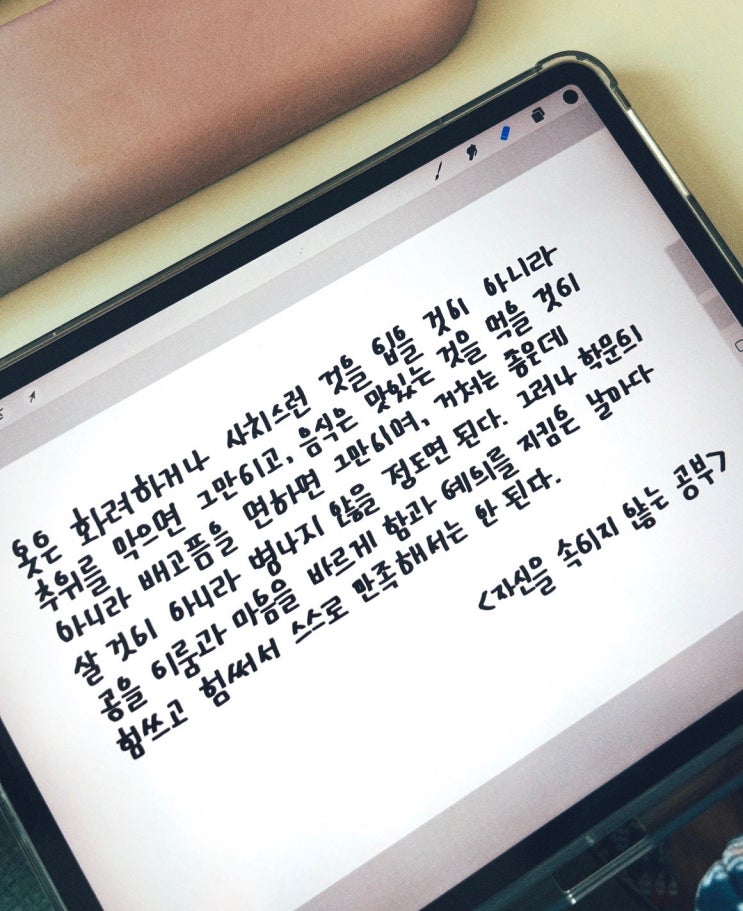 옷은 화려하거나 사치스런 것을 입을 것이 아니라
추위를 막으면 그만이고, 음식은 맛있는 것을 먹을 것이
아니라 배고픔을 면하면 그만이며, 거처는 좋은데
살 것이 아니라 병나지 않을 정도면 된다. 그러나 학문의
공을 이룸과 마음을 바르게 함과 예의를 지킴은 날마다
힘쓰고 힘써서 스스로 만족해서는 안 된다.
<자신을 속이지 않는 공부>